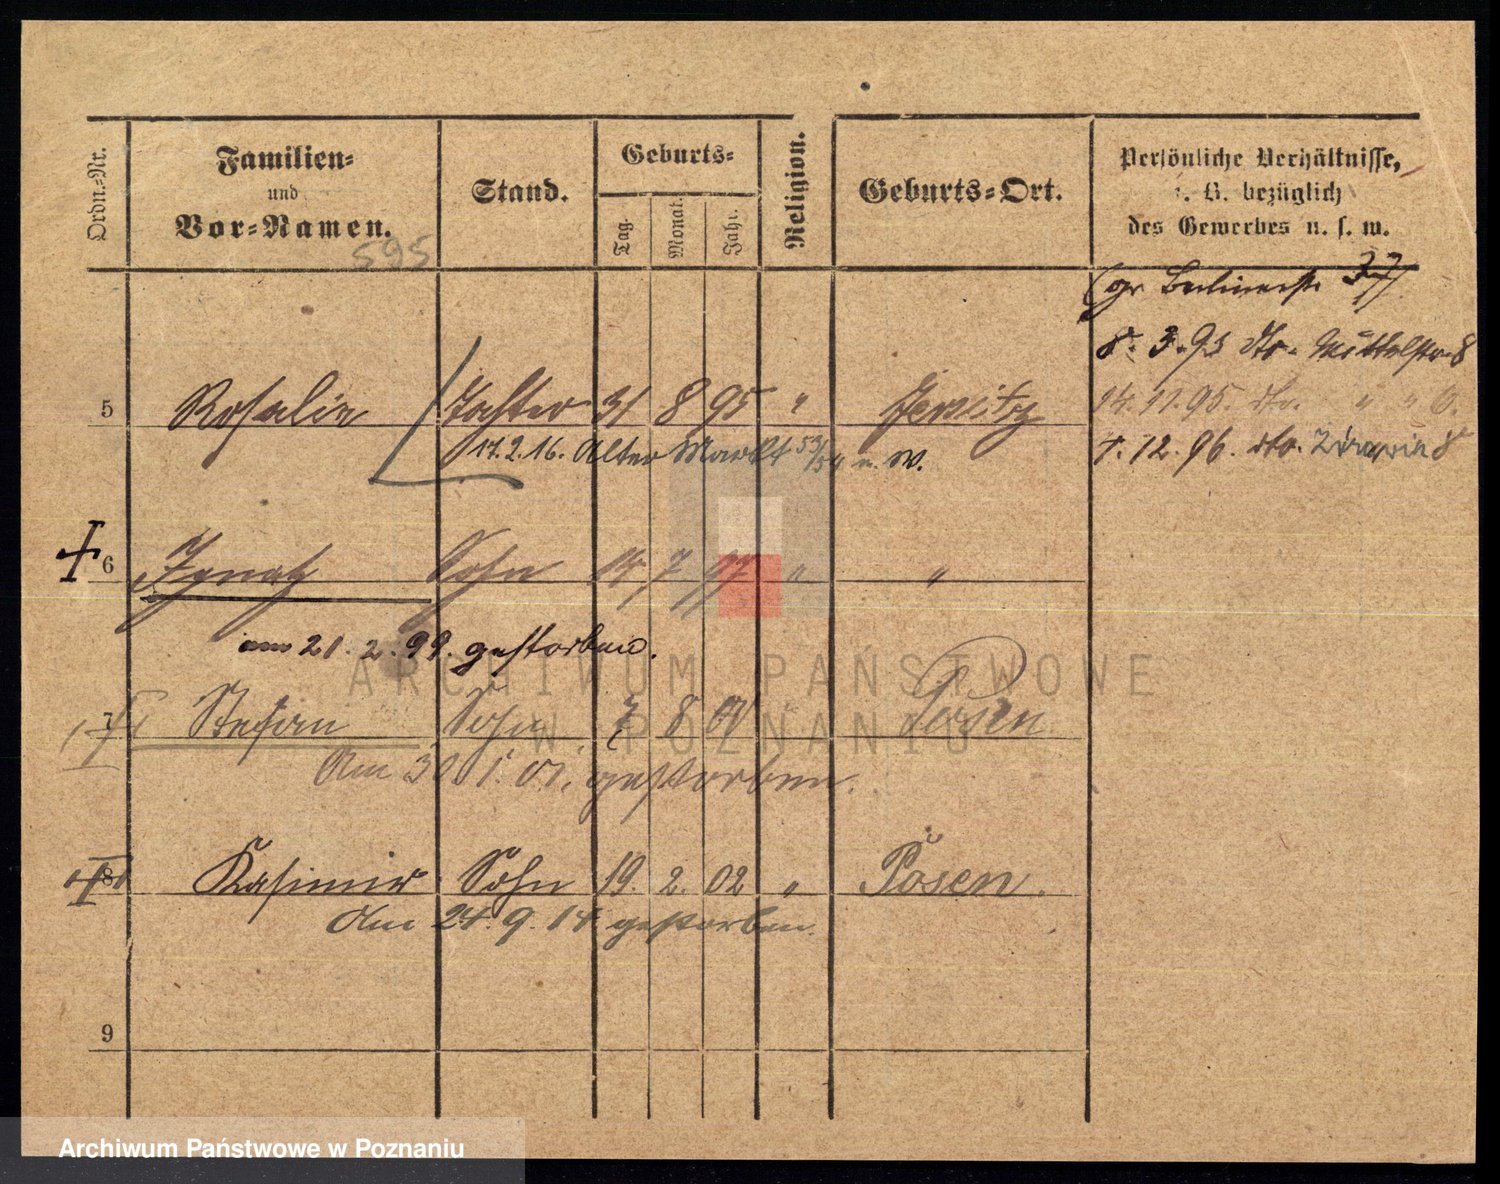 Ordn.-Nr.
Familien-
und
Vor-Namen.
595
Stand.
Geburts-
Tag.
Monat.
Jahr.
Religion.
Geburts-Ort.
Persönliche Verhältnisse,
z. B. bezüglich
des Gewerbes u. s. w.
(gr Berlinerstr 37)
8. 3. 95 dto. Mittelstr. 8
14. 11. 95. dto. " " 6.
4. 12. 96. dto.
5 Rosalie Tochter 31 8 95 " Jersitz
17. 2. 16. Alter Markt 53/54 u. W.
6 Ignatz Sohn 14 7 97 " "
am 21. 2. 99. gestorben.
7 Stefan Sohn 7 8 00 Posen
Am 30 1. 01. gestorben.
8 Kasimir Sohn 19. 2. 02 " Posen.
Am 24. 9. 14 gestorben.
9
ARCHIWUM PAŃSTWOWE
W POZNANIU
Archiwum Państwowe w Poznaniu